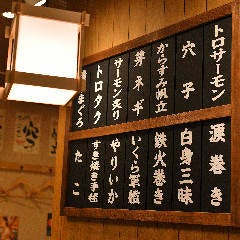 トロサーモン
穴子
からすみ帆立
芽ネギ
サーモン炙り
トロタク
まぐろ
涙巻き
白身三昧
鉄火巻き
いくら軍艦
やりいか
すき焼き手毬
たこ